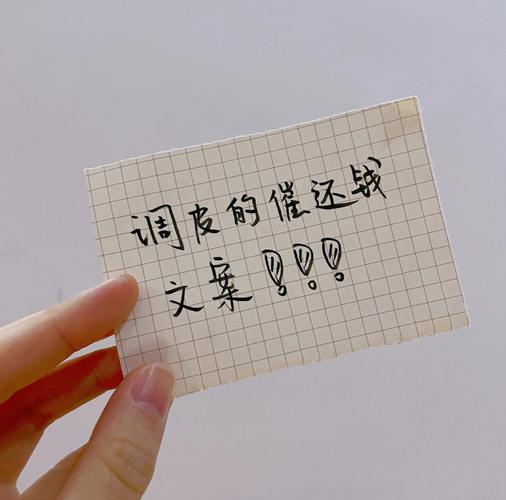 调皮的催还钱
文案!!!